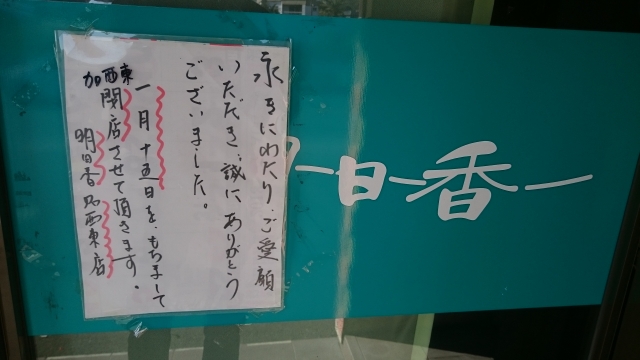 永きにわたり、ご愛顧
いただき、誠にありがとう
ございました。
一月十五日を、もちまして
加西東
閉店させて頂きます。
明日香 加西東店
日香